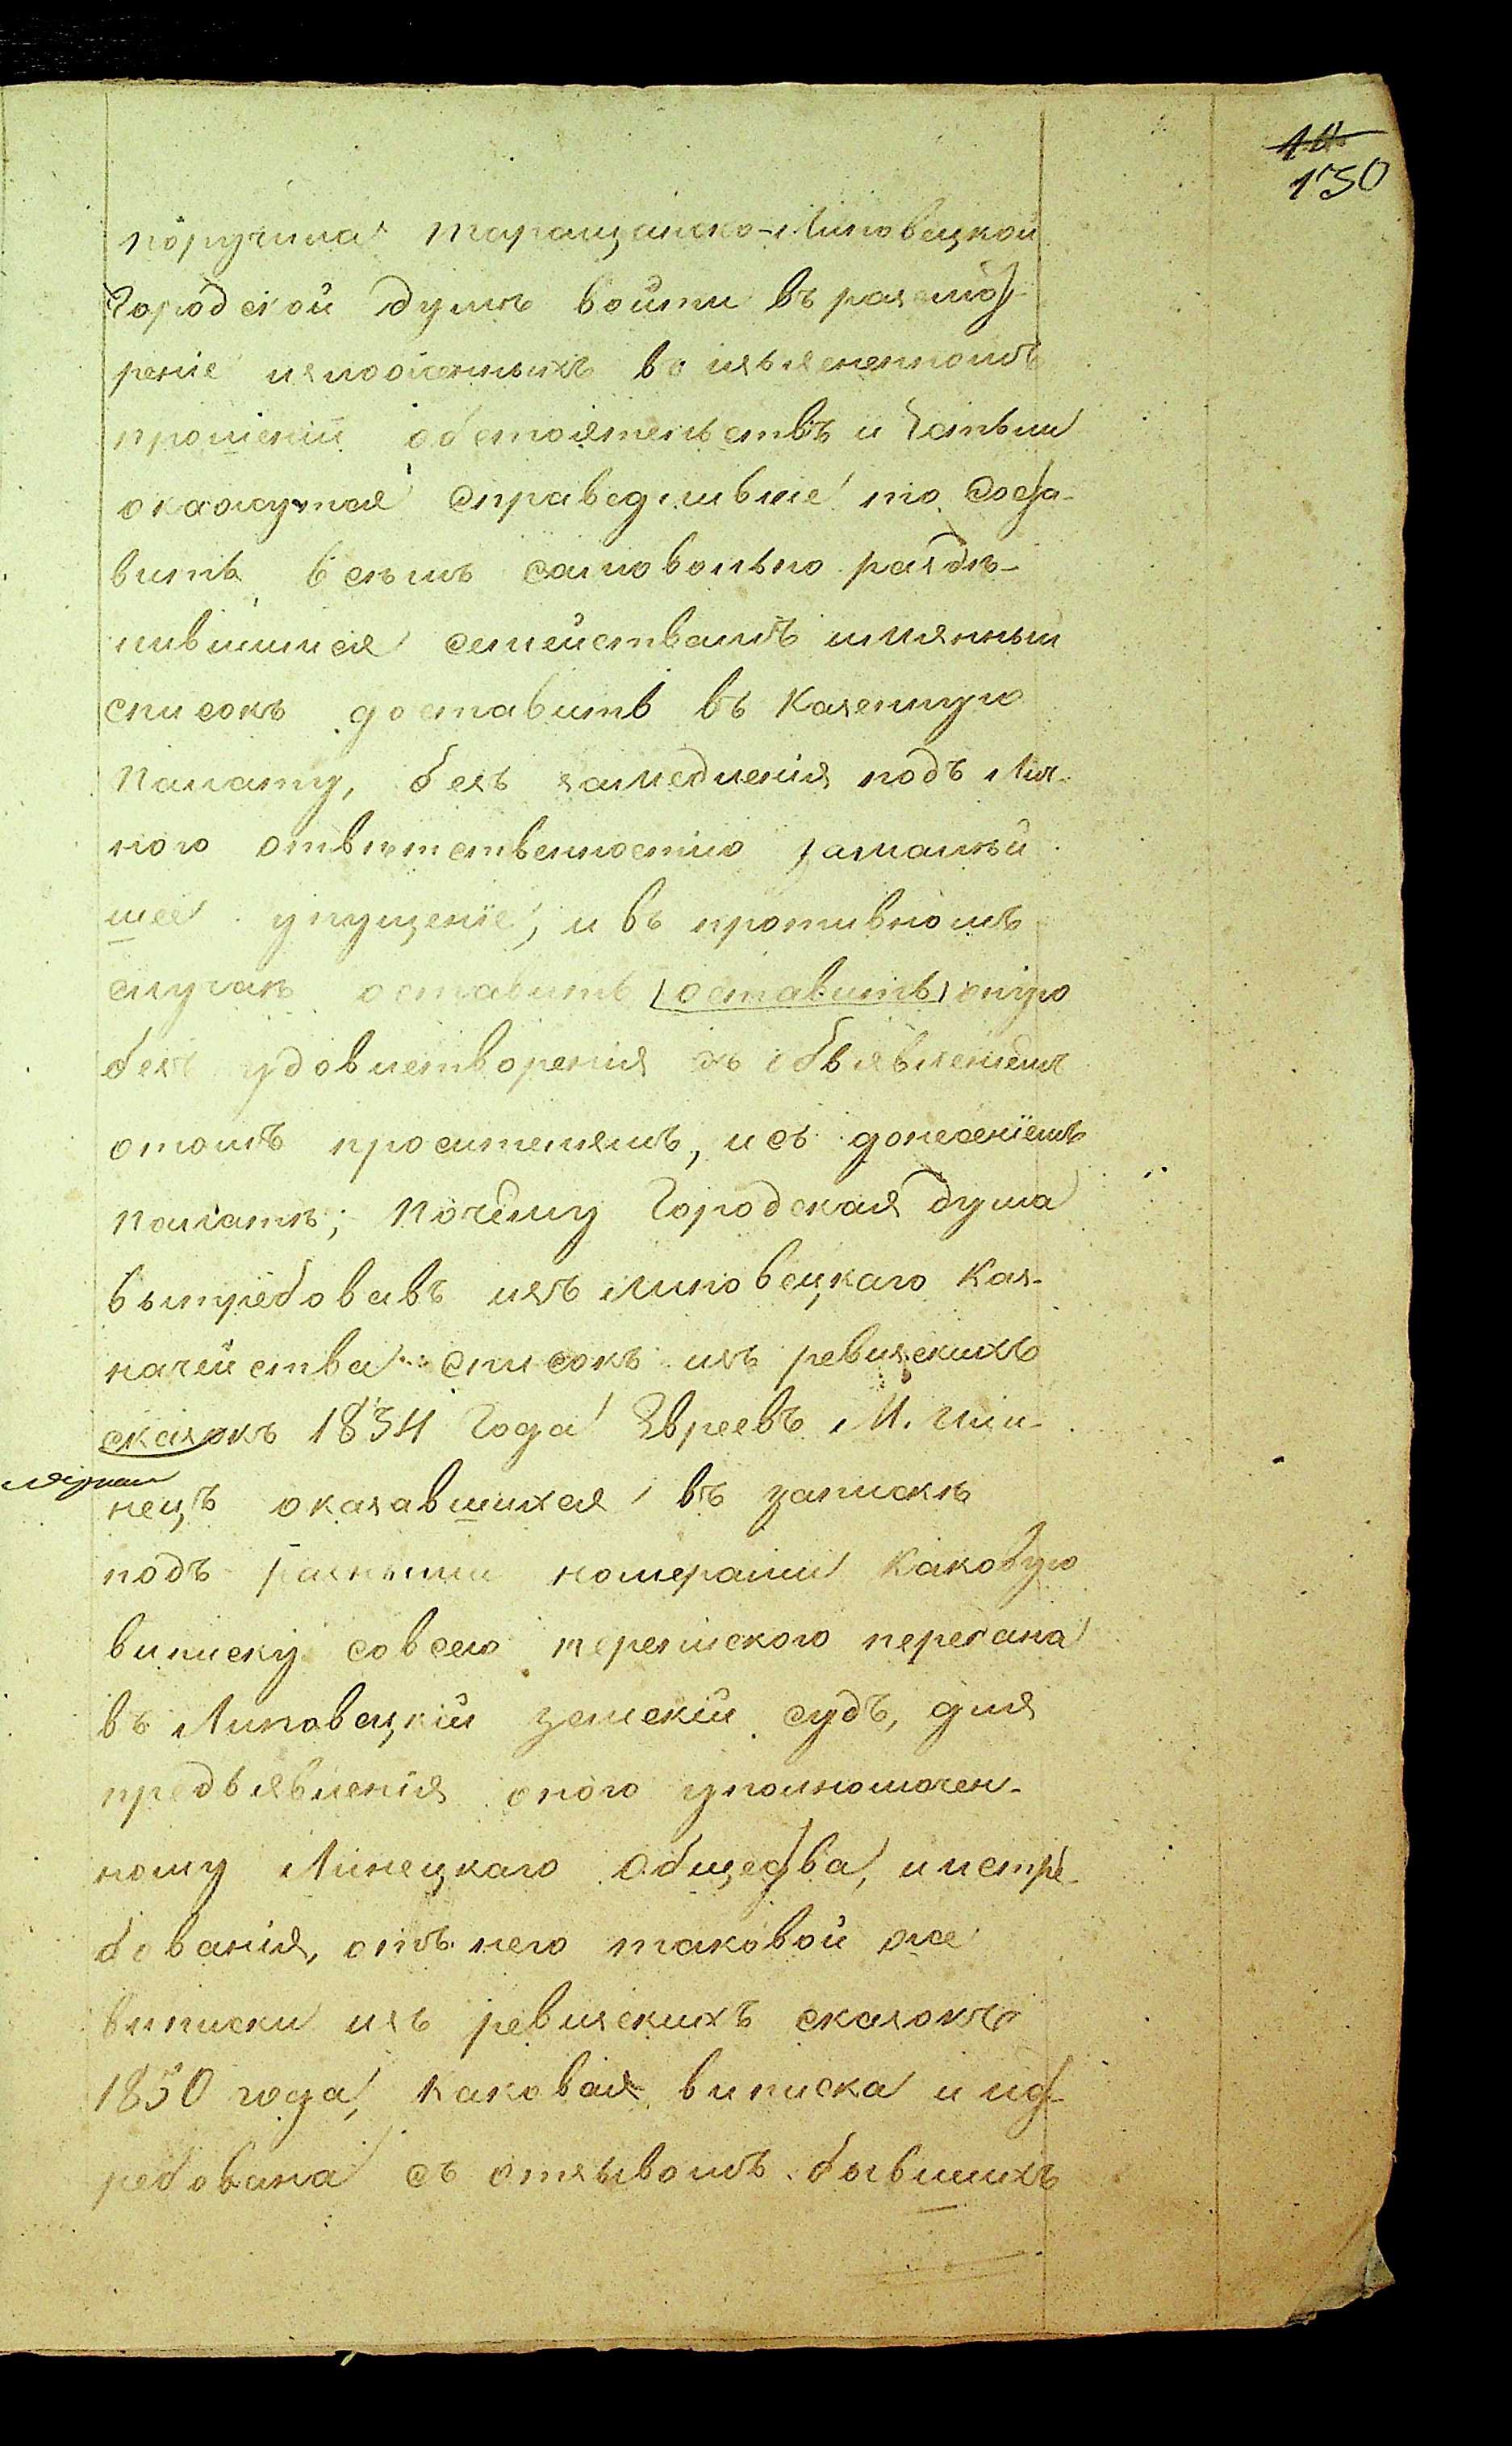 130
поручила Таращанско-Липовецкой
Городской думѣ войти въ разсмот-
реніе изложенныхъ въ изъясненномъ
прошеніи обстоятельствъ и Естьли
окажутся справедливые то Соста-
вить всѣмъ самовольно раздѣ-
лившимся семействамъ имянный
списокъ доставить въ Казенную
Палату, безъ замедленія подъ Лич-
ного отвѣтственностію замалѣй
шее упущеніе, и въ противномъ
случаѣ оставить (оставить) оную
безъ удовлетворенія съ объявленіемъ
отомъ просителямъ, и съ донесеніемъ
Палатѣ; Почему Городская дума
вытребовавъ изъ Липовецкаго Каз-
начейства списокъ изъ ревизскихъ
сказокъ 1834 Года Евреевъ М. Или-
нецъ оказавшихся въ запискѣ
подъ разными номерами Каковую
виписку совсею перепискою передана
въ Липовецкій земскій судъ, для
предъявленія оного уполномочен-
ному Линецкаго Общества, и истре-
бованія, отъ него таковой же
виписки изъ ревизскихъ сказокъ
1850 года, каковая виписка и ист-
ребована съ отзывомъ бывшихъ